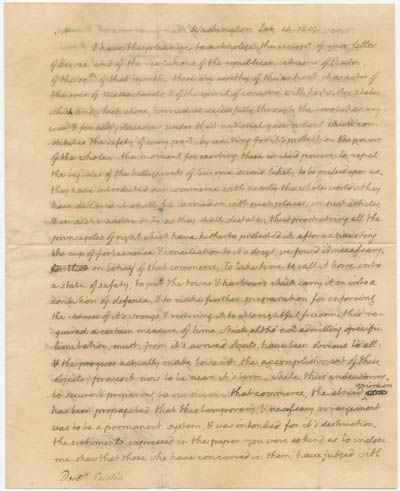 Sir Washington Jan. 14. 1809.
I have the pleasure to acknolege the reciept of your letter
of Dec. and of the resolutions of the republican citizens of Boston
of the 19th of that month. these are worthy of the antient character of
the sons of Massachusets & of the spirit of concord with her sister states
which, and which alone, carried us succesfully through the revolutionary
war & finally placed us under that national government which con-
stitutes the safety of every part, by uniting for it's protection the powers
of the whole. the moment for exerting these united powers, to repel
the injuries of the belligerents of Europe seems likely to be pressed upon us.
they have interdicted our commerce with nearly the whole world. they
have declared it shall be carried on with such places, in such articles
& in such measure only as they shall dictate; thus prostrating all the
principles of right which have hitherto protected it. after exhausting
the cup of forbearance & conciliation to it's dregs, we found it necessary,
on behalf of that commerce, to take time to call it home into
a state of safety, to put the towns & harbours which carry it on into a
condition of defence, & to make further preparation for enforcing
the redress of it's wrongs, & restoring it to it's rightful freedom. this re-
quired a certain measure of time, which altho' not admitting specific
limitation, must, from it's avowed objects, have been obvious to all:
& the progress actually made towards the accomplishment of these
objects, proves it now to be near it's term. while thus endeavoring
to secure, & preparing to vindicate that commerce, the absurd opinion
has been propagated that this temporary, & necessary arrangement
was to be a permanent system, & was intended for it's destruction.
the sentiments expressed in the paper you were so kind as to inclose
me, shew that those who have concurred in them, have judged with
Doctr. Eustis